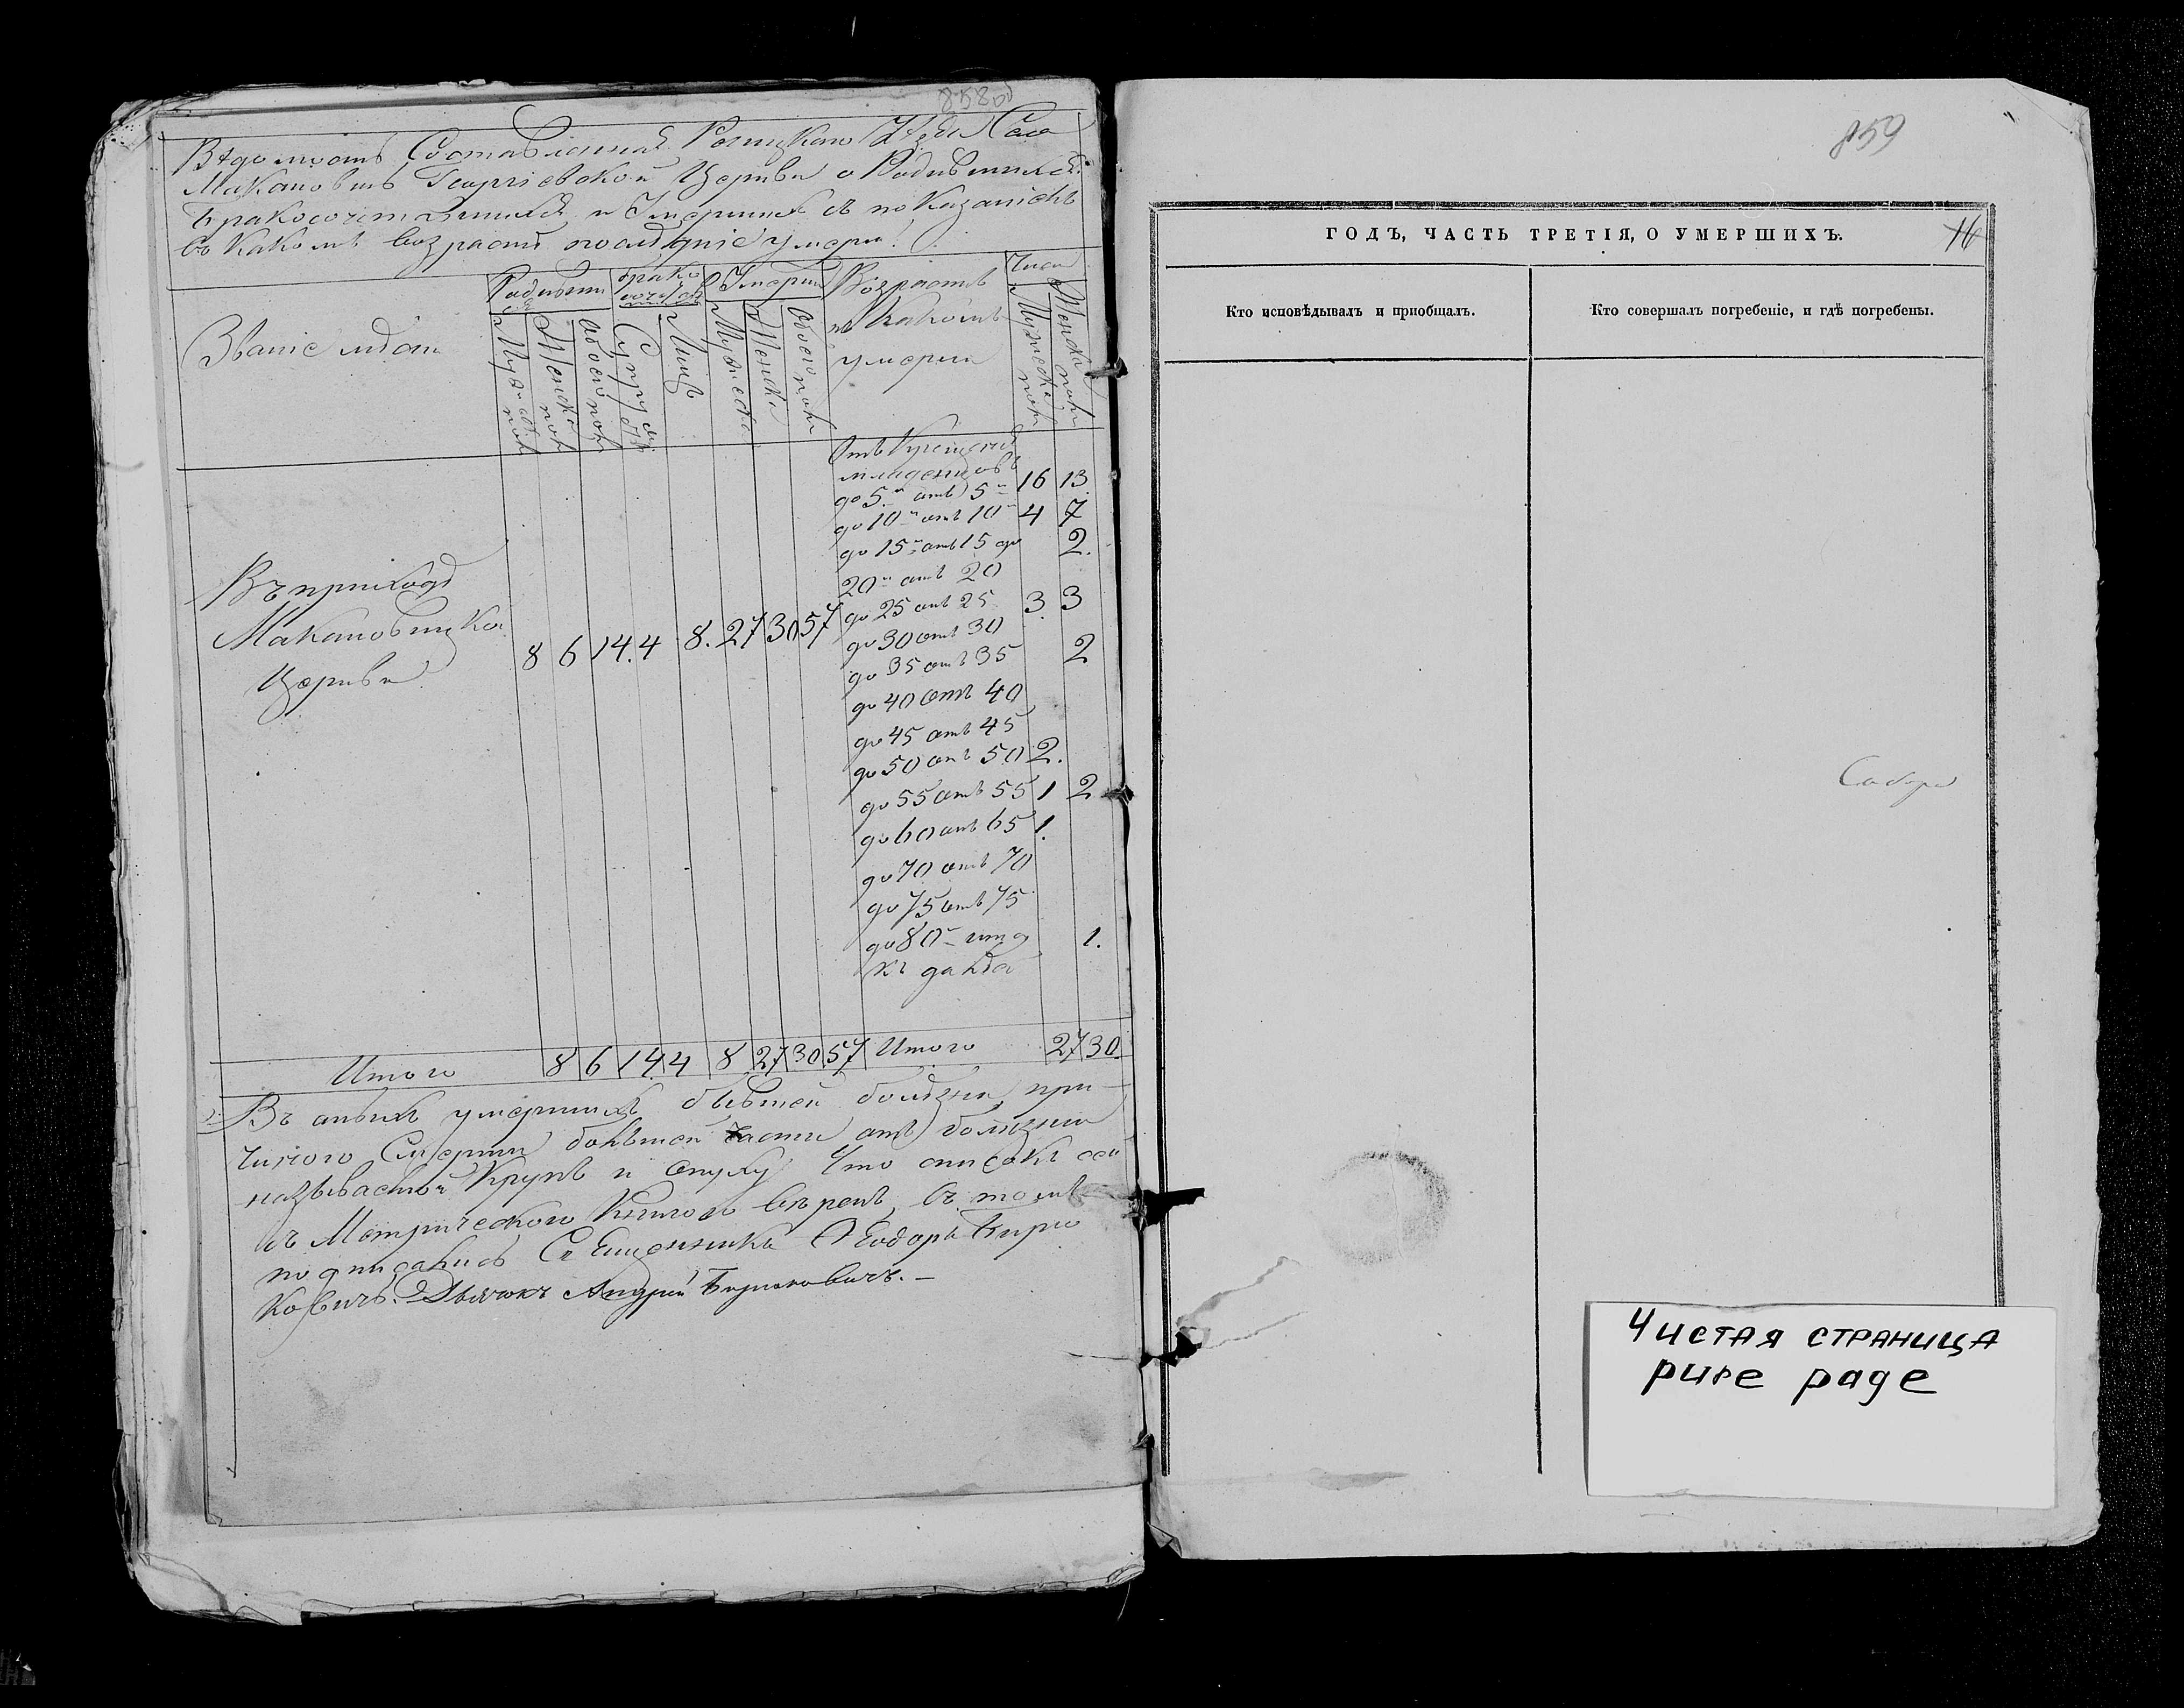 858об
Вѣдомость Составленная Рогицкаго Уѣзда Села
Макановичь Георгіевской Церкви о Родившихся
Бракосочетавшихся и Умершихъ съ показаніемъ
въ какомъ возрастѣ послѣдніе умерли.
Званіе мѣстъ
Родивши
Брако
сочетав
Умерши
Возрастъ
въ какомъ
умерли
Число
Мужеска
пола
Женска
пола
Обоего пола
Супруж
Лицъ
Мужеска
Женска
Обоего пола
Мужеска
пола
Женска
пола
Отъ Крещенія
младенцовъ
до 5. отъ 5 16 13
до 10 отъ 10 4 7
до 15 отъ 15 до 2.
20 отъ 20
до 25 отъ 25 3. 3
до 30 отъ 30
до 35 отъ 35 2
до 40 отъ 40
до 45 отъ 45
до 50 отъ 50 2.
до 55 отъ 55 1 2
до 60 отъ 65 1.
до 70 отъ 70
до 75 отъ 75
до 80 1.
далѣе
Въ приходѣ
Макановицкой
Церкви
8 6 14. 4 8. 27 30 57
Итого 8 6 14. 4 8 27 30 57 Итого 27 30
Въ умершихъ бывшей болѣзни при-
чиною Смерти большей части отъ болѣзни
называемой Крупъ и опуху Что списокъ сей
съ Метрическою Книгою вѣренъ въ томъ
подписались Священникъ Ѳеодоръ Бирю
ковичъ. Дьячокъ Андрей Бириковичъ. –
859
ГОДЪ, ЧАСТЬ ТРЕТІЯ, О УМЕРШИХЪ.
16
Кто исповѣдывалъ и пріобщалъ.
Кто совершалъ погребеніе, и гдѣ погребены.
Чистая страница
pure page